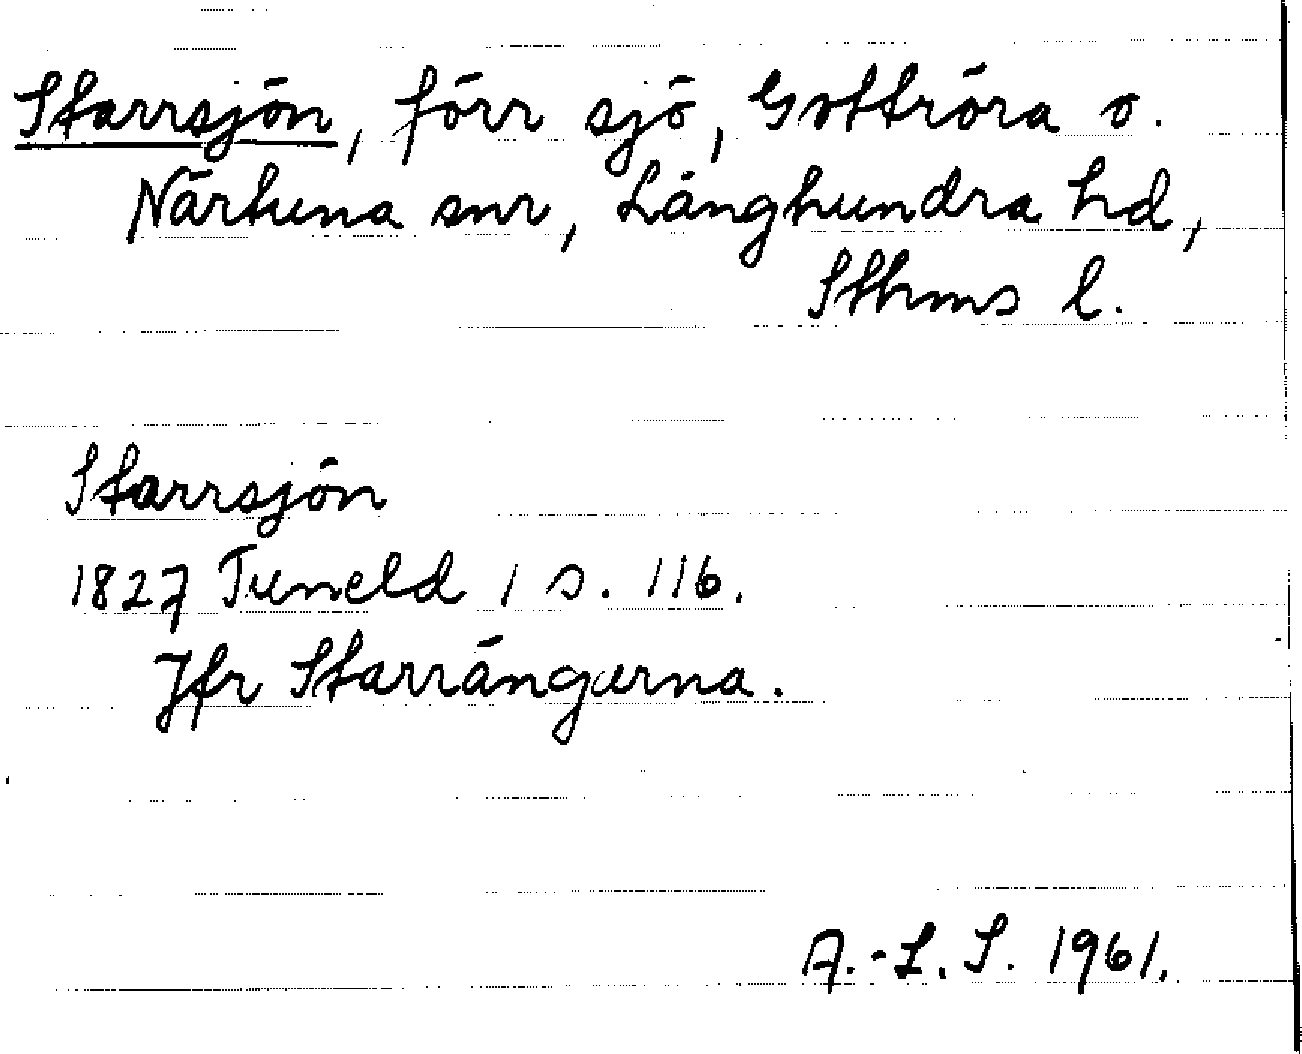 Starrsjön, förr sjö, Gottröra o.
Närtuna snr, Långhundra hd,
Sthms l.
Starrsjön
1827 Tuneld 1 s. 116.
Jfr Starrängarna.
A.-L. S. 1961.